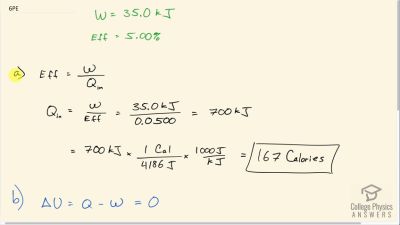 6PE
W = 35.0 kJ
Eff = 5.00%
a) Eff = W / Q_in
Q_in = W / Eff = 35.0 kJ / 0.0500 = 700 kJ
= 700 kJ × 1 Cal / 4186 J × 1000 J / kJ = 167 Calories
b) ΔU = Q - W = 0
College Physics
ANSWERS